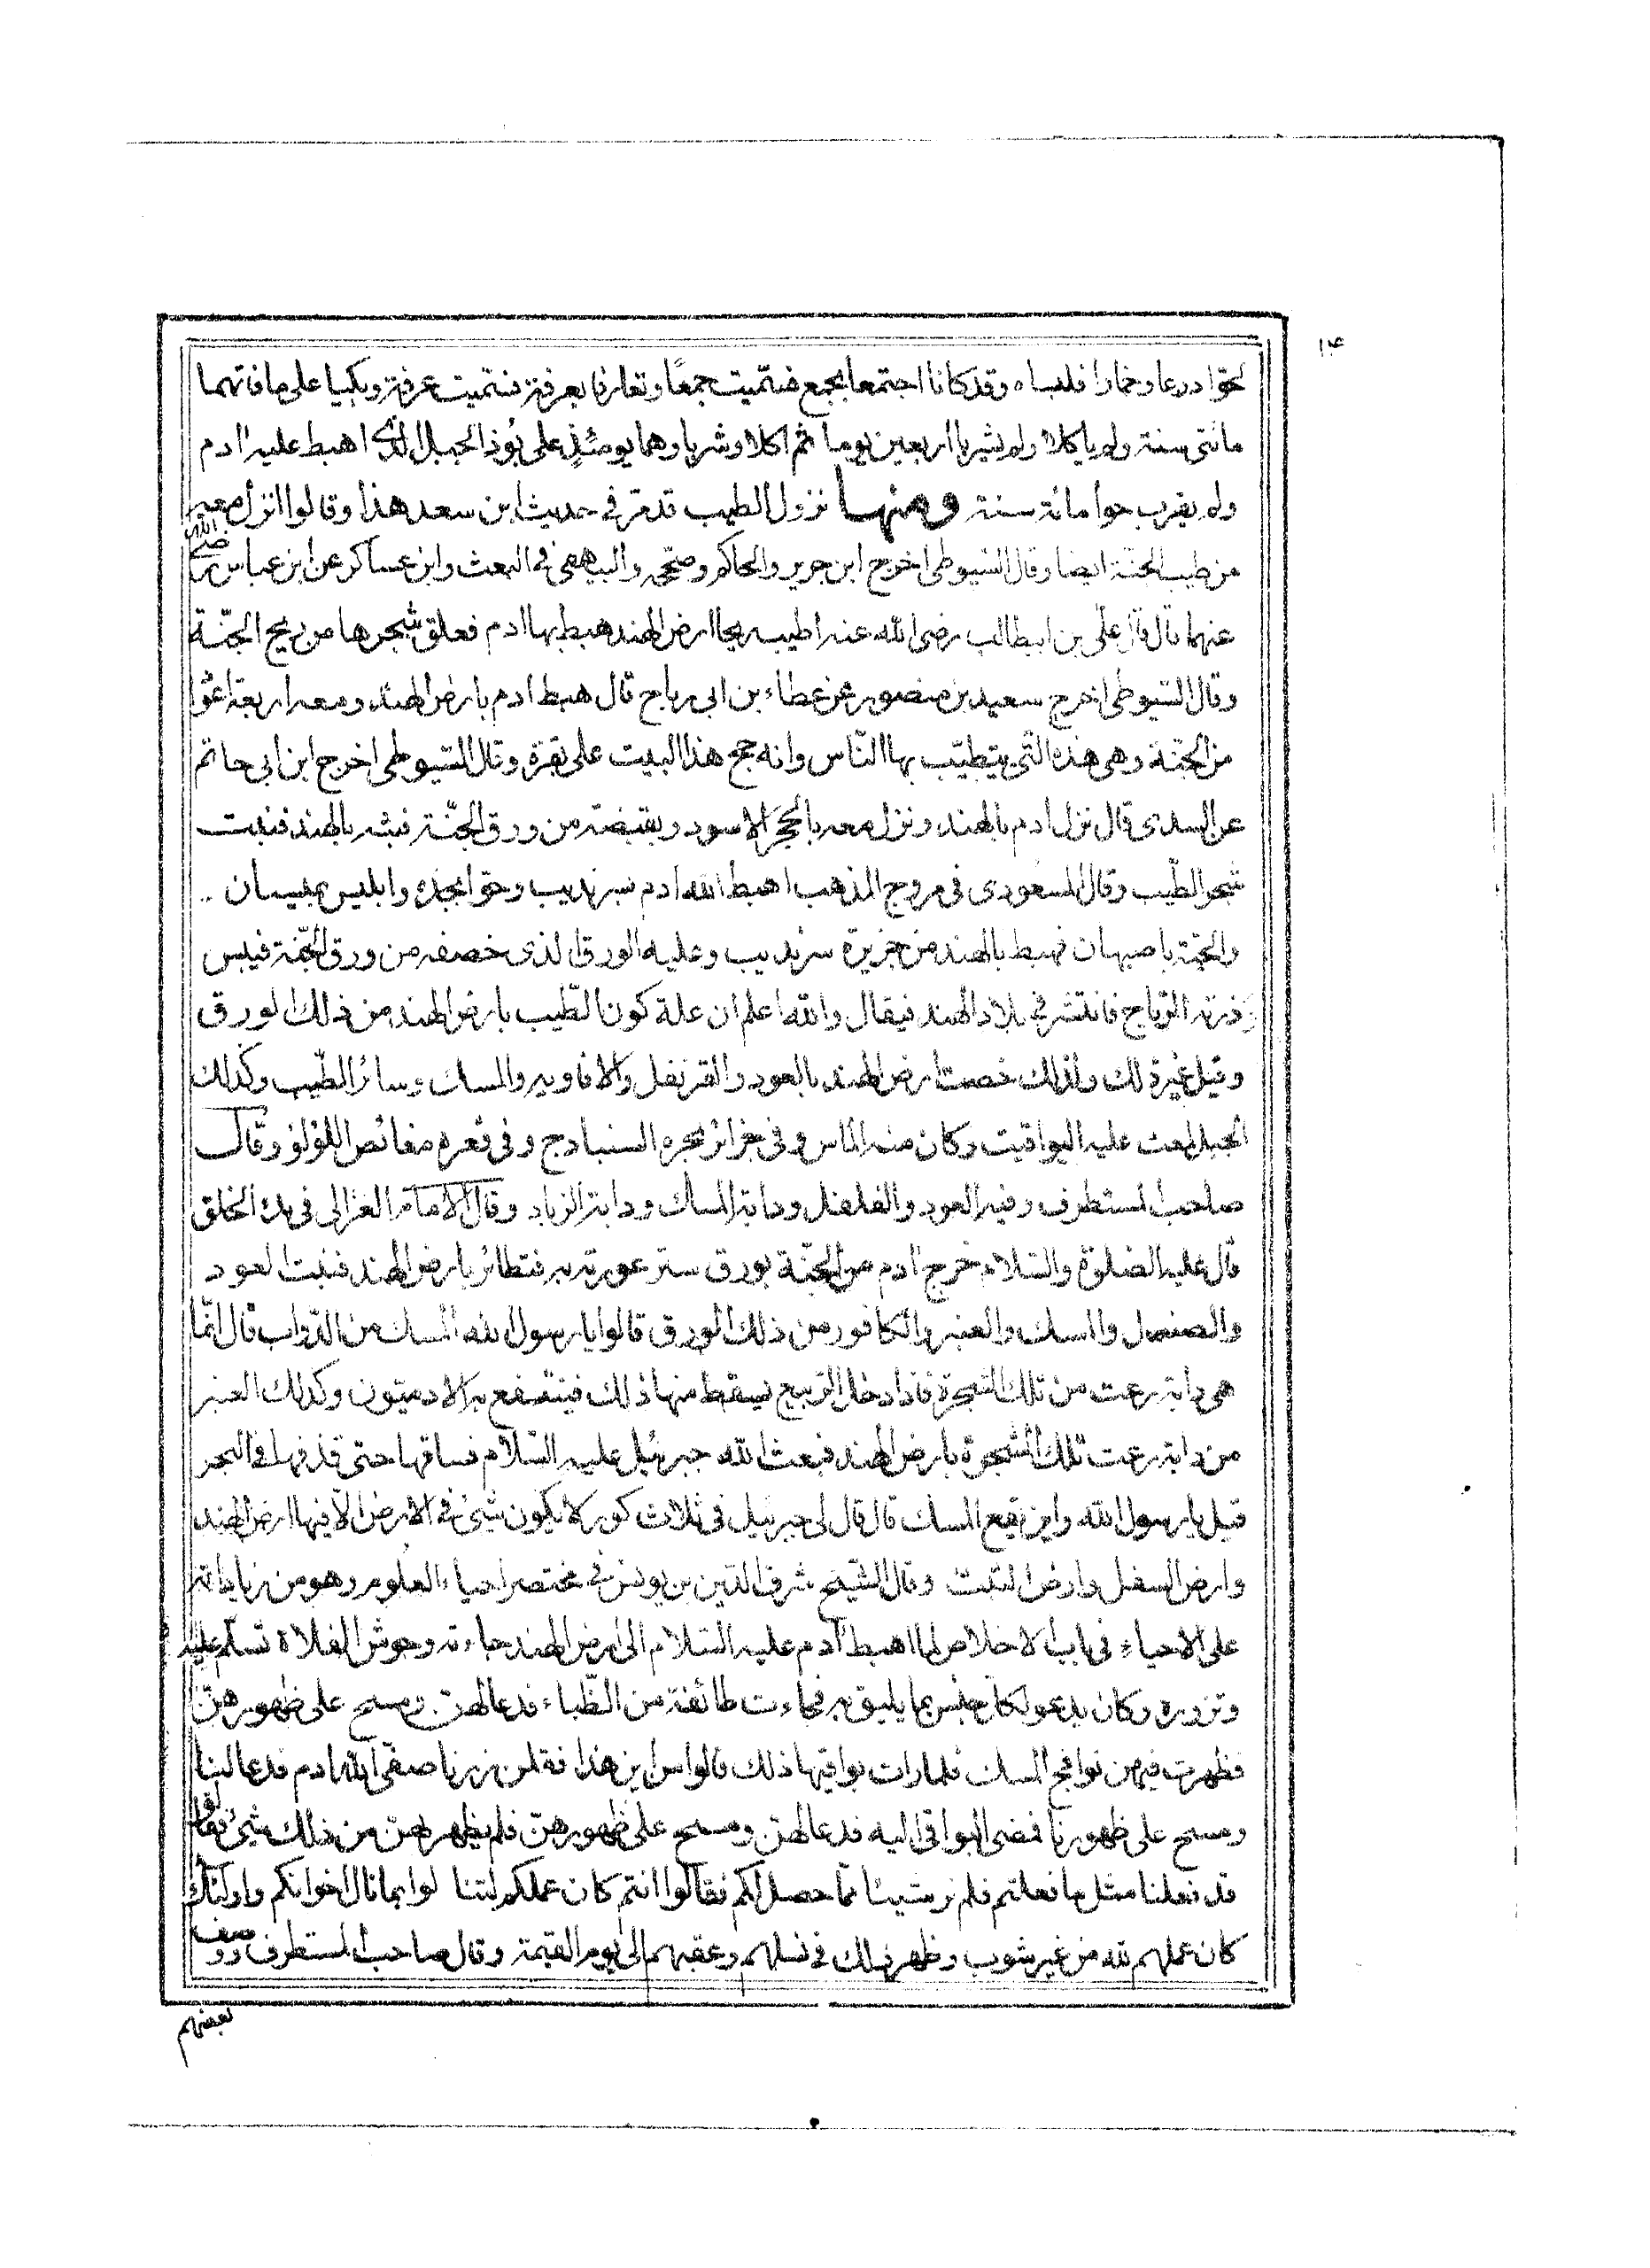 ١٤
لحوّا درعا وخمارا فلبساه وقد كانا اجتمعا بجمع فسّميت جمعًا وتعارفا بعرفة فسّميت عرفة وبكيا على ما فاتهما
مائتى سنة ولم ياكلا ولم يشربا اربعين يوما ثم اكلا وشربا وهما يومئذٍ على بُوذ الجبل الذى اهبط عليه ادم
ولم يقرب حوا مائة سنة ومنها نزول الطيب قد مرّ فى حديث ابن سعد هذا وقالوا انزل معه
من طيب الجنّة ايضا وقال السّيوطى اخرج ابن جرير والحاكم وصحّحه والبيهقى فى البعث وابن عساكر عن ابن عباس رضى الله
عنهما قال قال على بن ابيطالب رضى الله عنه اطيب ريحا ارض الهند هبط بها ادم فعلق شجرها من ريح الجنّة
وقال السّيوطى اخرج سعيد بن منصور عن عطاء بن ابى رباح قال هبط ادم بارض الهند ومعه اربعة اعوا
من الجنّة وهى هذه الّتى يتطيّب بها النّاس وانه حج هذا البيت على بقرة وقال السّيوطى اخرج ابن ابى حاتم
عن السدى قال نزل ادم بالهند ونزل معه بالحجر الاسود وبقبضة من ورق الجنّة فبثه بالهند فنبت
شجر الطّيب وقال المسعودى فى مروج الذهب اهبط الله ادم بسرنديب وحوّا بجده وابليس ببيسان
والحيّة باصبهان فهبط بالهند من جزيرة سرنديب وعليه الورق الذى خصفه من ورق الجنّة فيبس
وذرته الرّياح فانتشر فى بلاد الهند فيقال والله اعلم ان علة كون الطّيب بارض الهند من ذلك الورق
وقيل غير ذلك ولذلك خصت ارض الهند بالعود والقرنفل والافاويه والمسك وسائر الطّيب وكذلك
الجبل لمعت عليه اليواقيت وكان منه الماس وفى جزائر بحره السنبادج وفى قعره مغائص اللؤلؤ وقال
صاحب المستطرف وفيه العود والفلفل ودابة المسك ودابة الزباد وقال الامام الغزالى فى بدء الخلق
قال عليه الصّلوة والسّلام خرج ادم من الجنّة بورق ستر عورته به فتطائر بارض الهند فنبت العود
والصندل والمسك والعنبر والكافور من ذلك الورق قالوا يا رسول الله المسك من الدّواب قال انّما
هى دابة رعت من تلك الشجرة فاذا دخل الرّبيع يسقط منها ذلك فينتفع به الادميّون وكذلك العنبر
من دابة رعت تلك الشجرة بارض الهند فبعث الله جبرئيل عليه السّلام فساقها حتى قذفها فى البحر
قيل يا رسول الله واين يقع المسك قال قال لى جبرئيل فى ثلاث كور لا يكون شئ فى الارض الّا فيها ارض الهند
وارض السغل وارض التبت وقال الشّيخ شرف الدّين بن يونس فى مختصر احياء العلوم وهو من زياداته
على الاحياء فى باب الاخلاص لما اهبط آدم عليه السّلام الى ارض الهند جاءته وحوش الفلاة تسلّم عليه
وتزوره وكان يدعو لكل جنس بما يليق به فجاءت طائفة من الظّباء فدعا لهنّ ومسح على ظهورهنّ
فظهرت فيهن نوافج المسك فلما رات بواقيها ذلك قالوا من اين هذا فقلن زرنا صفىّ الله ادم فدعا لنا
ومسح على ظهورنا فمضى البواقى اليه فدعا لهنّ ومسح على ظهورهنّ فلم يظهر لهنّ من ذلك شئ فقالوا
قد فعلنا مثل ما فعلتم فلم نر شيئا ممّا حصل لكم فقالوا انتم كان عملكم لتنالوا بما نال اخوانكم واولئك
كان عملهم لله من غير شوب وظهر ذلك فى نسلهم وعقبهم الى يوم القيٰمة وقال صاحب المستطرف ووصف
بعضهم